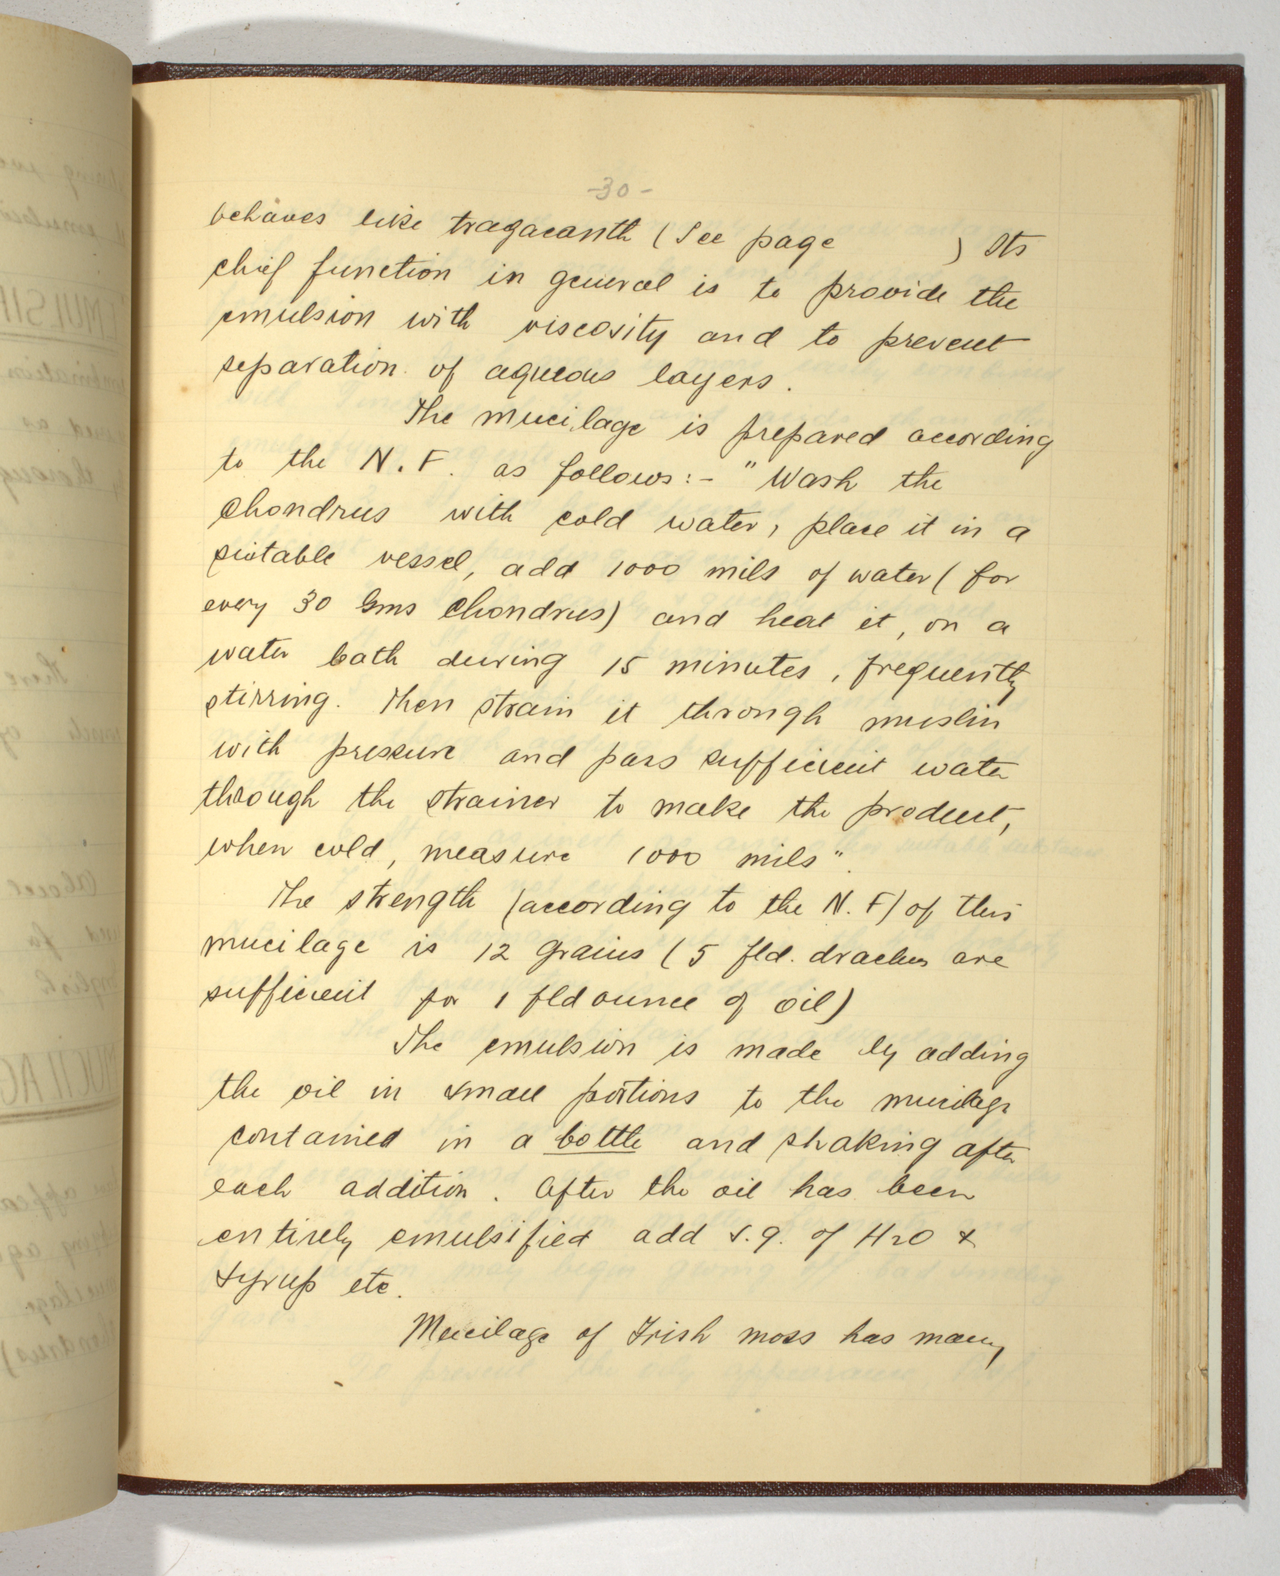 -30-
behaves like tragacanth (See page ) Its
chief function in general is to provide the
emulsion with viscosity and to prevent
separation of aqueous layers.
The mucilage is prepared according
to the N.F. as follows:- "Wash the
chondrus with cold water, place it in a
suitable vessel, add 1000 mils of water (for
every 30 Gms Chondrus) and heat it, on a
water bath during 15 minutes, frequently
stirring. Then strain it through muslin
with pressure and pass sufficient water
through the strainer to make the product,
when cold, measure 1000 mils".
The strength (according to the N.F) of this
mucilage is 12 grains (5 fld. drachms are
sufficient for 1 fld ounce of oil)
The emulsion is made by adding
the oil in small portions to the mucilage
contained in a bottle and shaking after
each addition. After the oil has been
entirely emulsified add s.q. of H2O &
syrup etc.
Mucilage of Irish moss has many